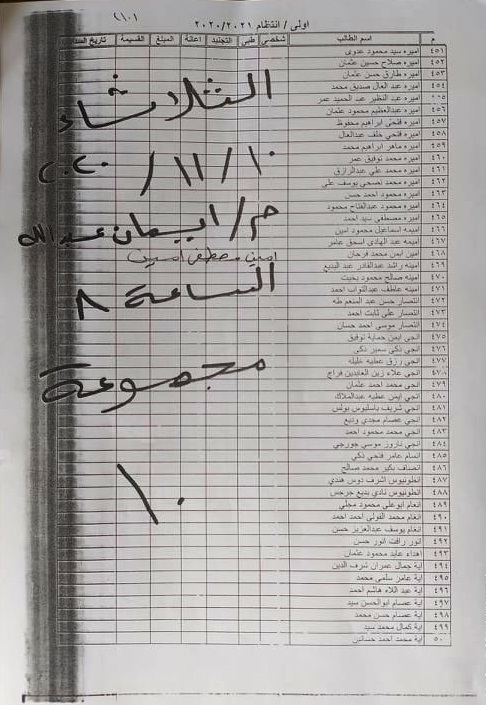 (١٠)
اولى / انتظام ٢٠٢٠/٢٠٢١
م اسم الطالب شخصي طبي التجنيد اعانة المبلغ القسيمة تاريخ السداد
٤٥١ اميره سيد محمود عدوى
٤٥٢ اميره صلاح حسين عثمان
٤٥٣ اميره طارق حسن عثمان
٤٥٤ اميره عبد العال صديق محمد
٤٥٥ اميره عبد النظير عبد الحميد عمر
٤٥٦ اميره عبدالعظيم محمود عثمان
٤٥٧ اميره فتحى ابراهيم محفوظ
٤٥٨ اميره فتحي خلف عبدالعال
٤٥٩ اميره ماهر ابراهيم محمد
٤٦٠ اميره محمد توفيق عمر
٤٦١ اميره محمد علي عبدالرازق
٤٦٢ اميره محمد يوسف على
٤٦٣ اميره محمود احمد حسن
٤٦٤ اميره محمود عبدالفتاح محمود
٤٦٥ اميره مصطفى سيد احمد
٤٦٦ اميمه اسماعيل محمود امين
٤٦٧ اميمه عبد الهادى اسحق عامر
٤٦٨ امين ايمن محمد فرحان
٤٦٩ امينه راشد عبدالقادر عبد البديع
٤٧٠ امينه صالح محمود بخيت
٤٧١ امينه عاطف عبدالتواب احمد
٤٧٢ انتصار حسن عبد المنعم طه
٤٧٣ انتصار علي ثابت احمد
٤٧٤ انتصار موسى احمد حسان
٤٧٥ انجى ايمن حماية توفيق
٤٧٦ انجى ذكى سمير ذكى
٤٧٧ انجي رزق عطيه خليله
٤٧٨ انجي علاء زين العابدين فراج
٤٧٩ انجي محمد احمد عثمان
٤٨٠ انجي ايمن عطيه عبدالملاك
٤٨١ انجي شريف باسليوس بولس
٤٨٢ انجي عصام مجدي وديع
٤٨٣ انجي محمد محمود احمد
٤٨٤ انجي ناروز موسي جورجي
٤٨٥ انسام عامر فتحي ذكي
٤٨٦ انصاف بكير محمد صالح
٤٨٧ انطونيوس اشرف دوس هندي
٤٨٨ انطونيوس نادي بديع جرجس
٤٨٩ انعام ابوعلي محمود مجلي
٤٩٠ انغام محمد القولى احمد احمد
٤٩١ انغام يوسف عبدالعزيز حسن
٤٩٢ انور رافت انور حسن
٤٩٣ اهداء عابد محمود عثمان
٤٩٤ اية جمال عمران شرف الدين
٤٩٥ اية عامر سامى محمد
٤٩٦ اية عبد اللاه هاشم احمد
٤٩٧ اية عصام ابوالحسن سيد
٤٩٨ اية عصام حسن محمد
٤٩٩ اية كمال محمد سيد
٥٠ اية محمد احمد حسانين
الثلاثاء
١٠ / ١١ / ٢٠٢٠
م / ايمان عبدالله
امين مصطفى امين
الساعة ٨
مجموعة
١٠